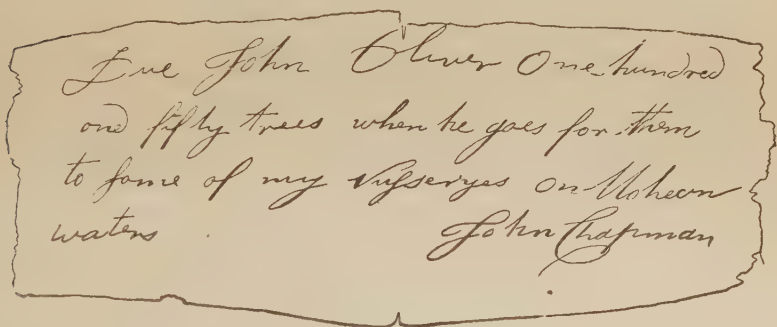 Due John Oliver One hundred
and fifty trees when he goes for them
to some of my Nusseryes on Mohecan
waters John Chapman